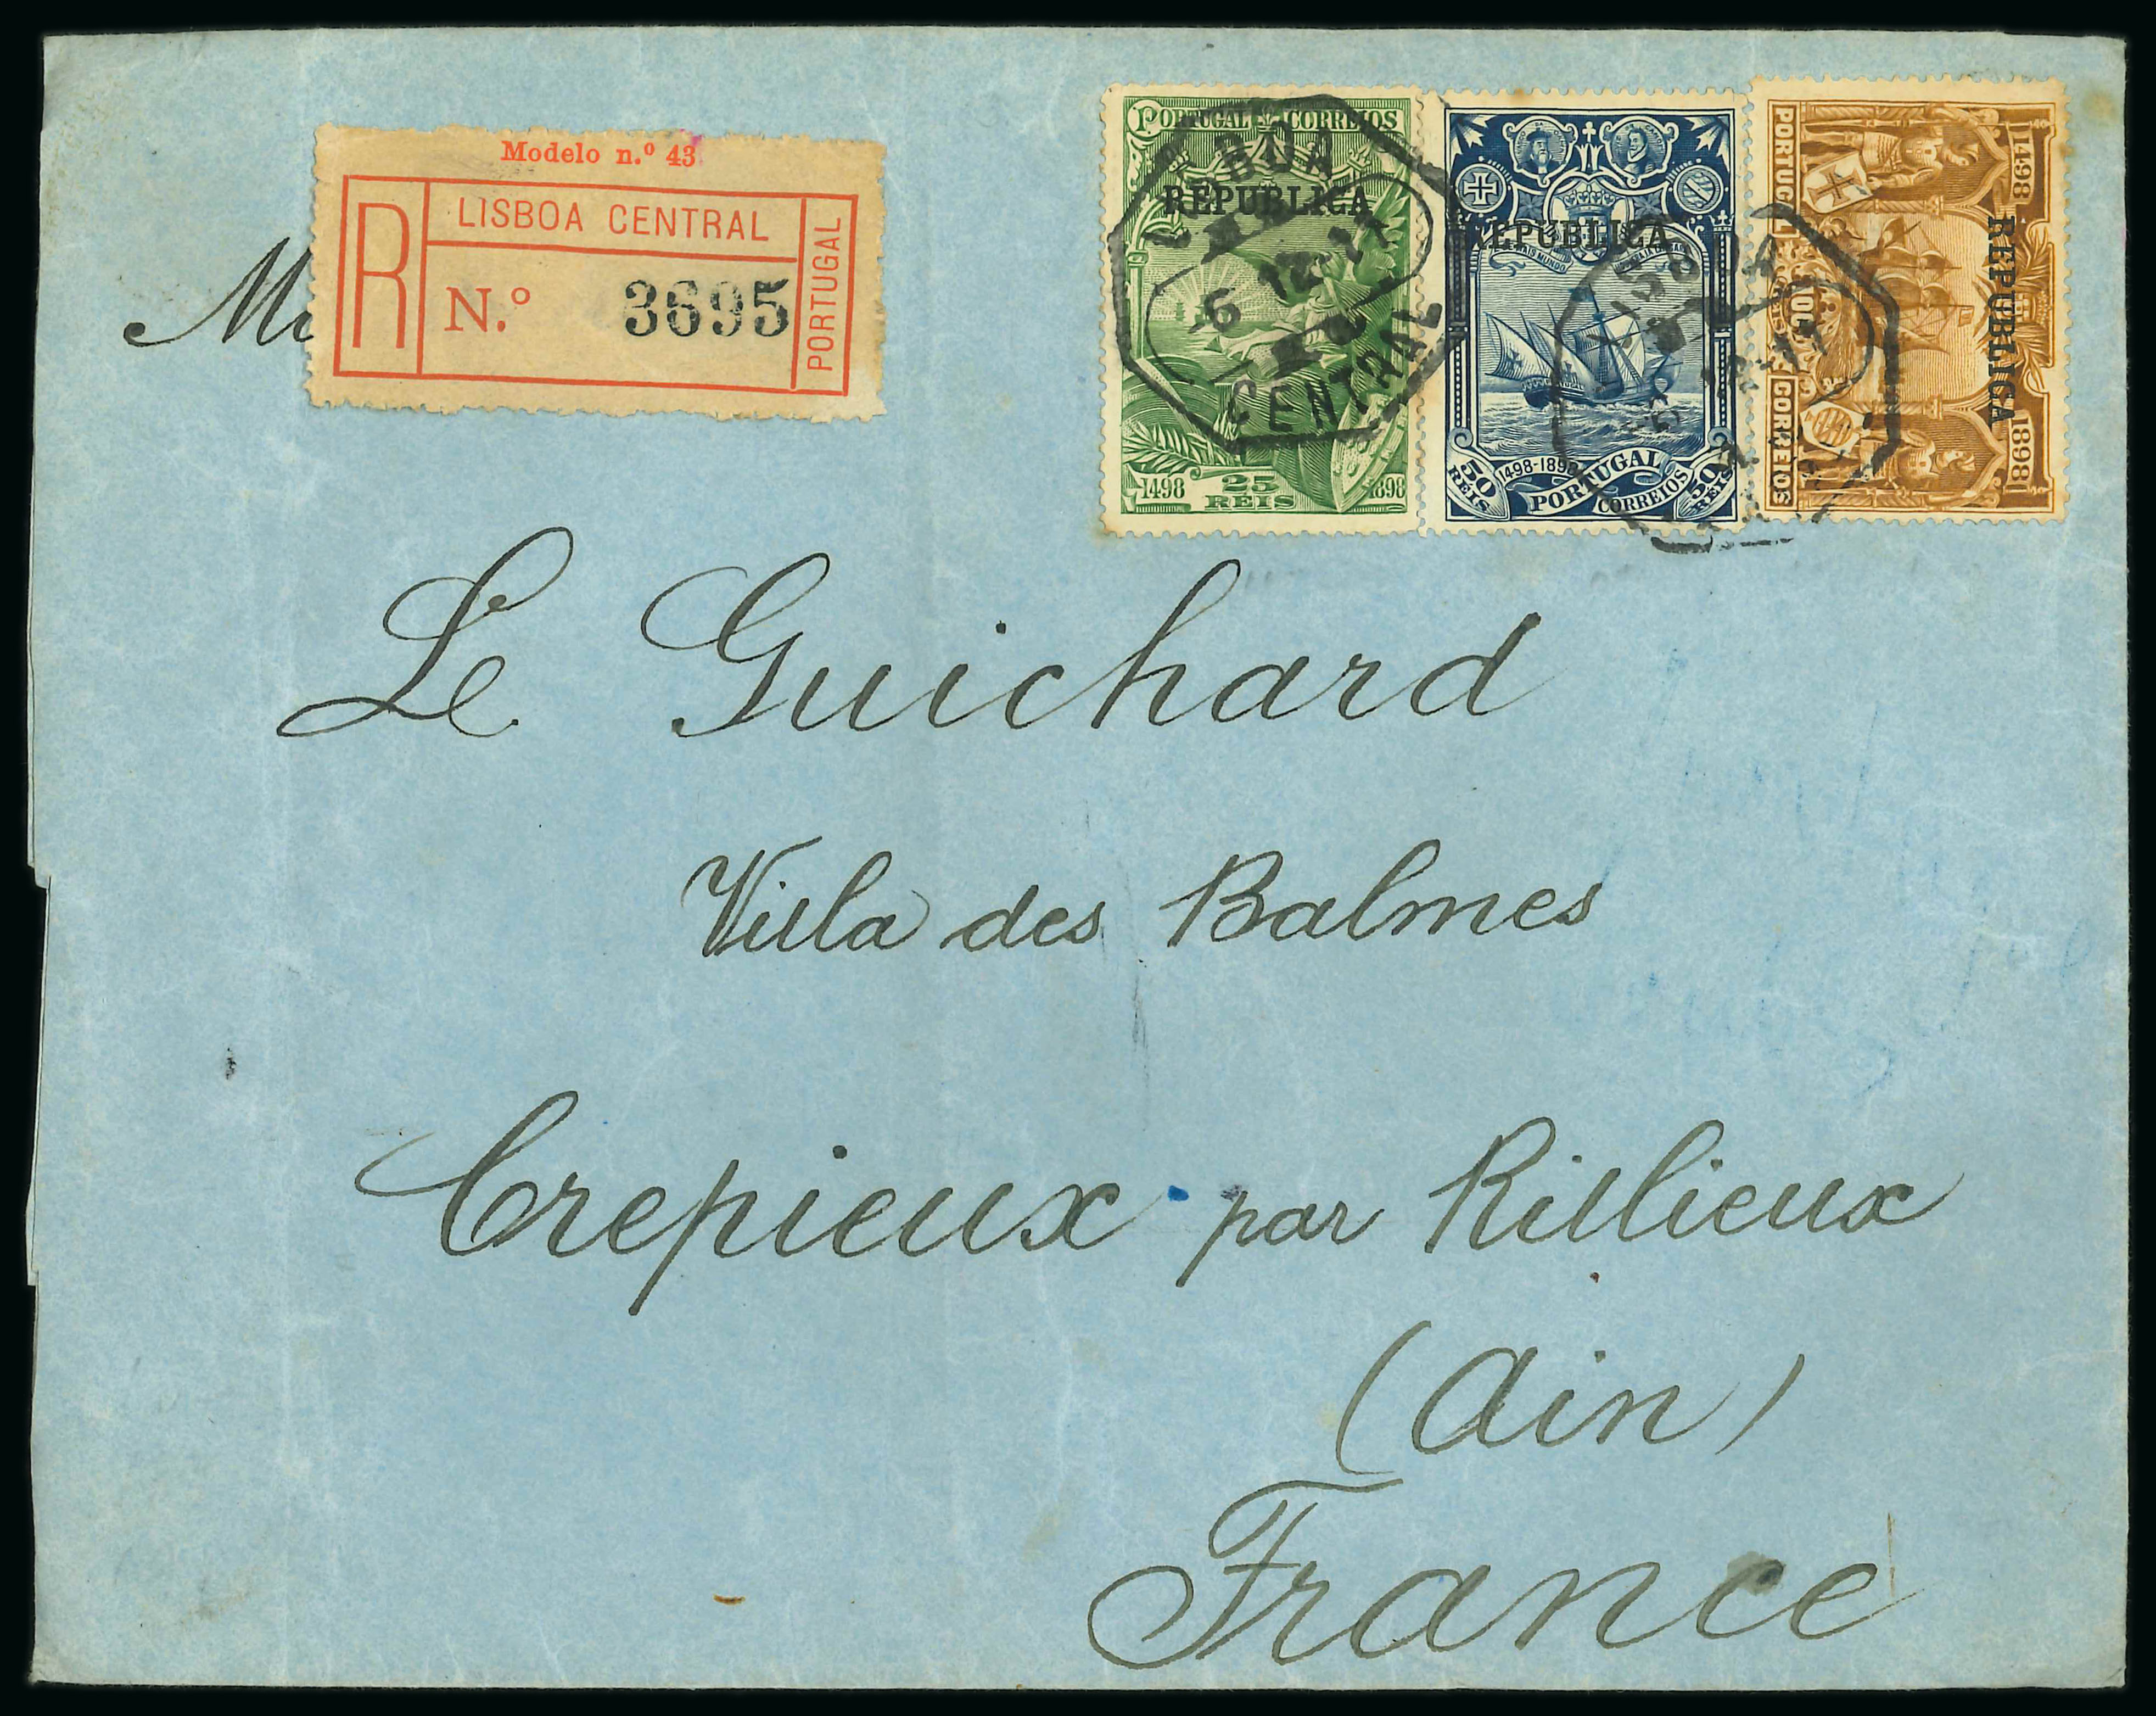 Modelo n.º 43
R
LISBOA CENTRAL
N.º 3695
PORTUGAL
PORTUGAL CORREIOS
REPUBLICA
1498 25 REIS 1898
CENTRAL
REPUBLICA
1498-1898
50 REIS PORTUGAL CORREIOS 50 REIS
1498 1898
PORTUGAL CORREIOS
REPUBLICA
Le Guichard
Villa des Balmes
Crepieux par Rillieux
(Ain)
France